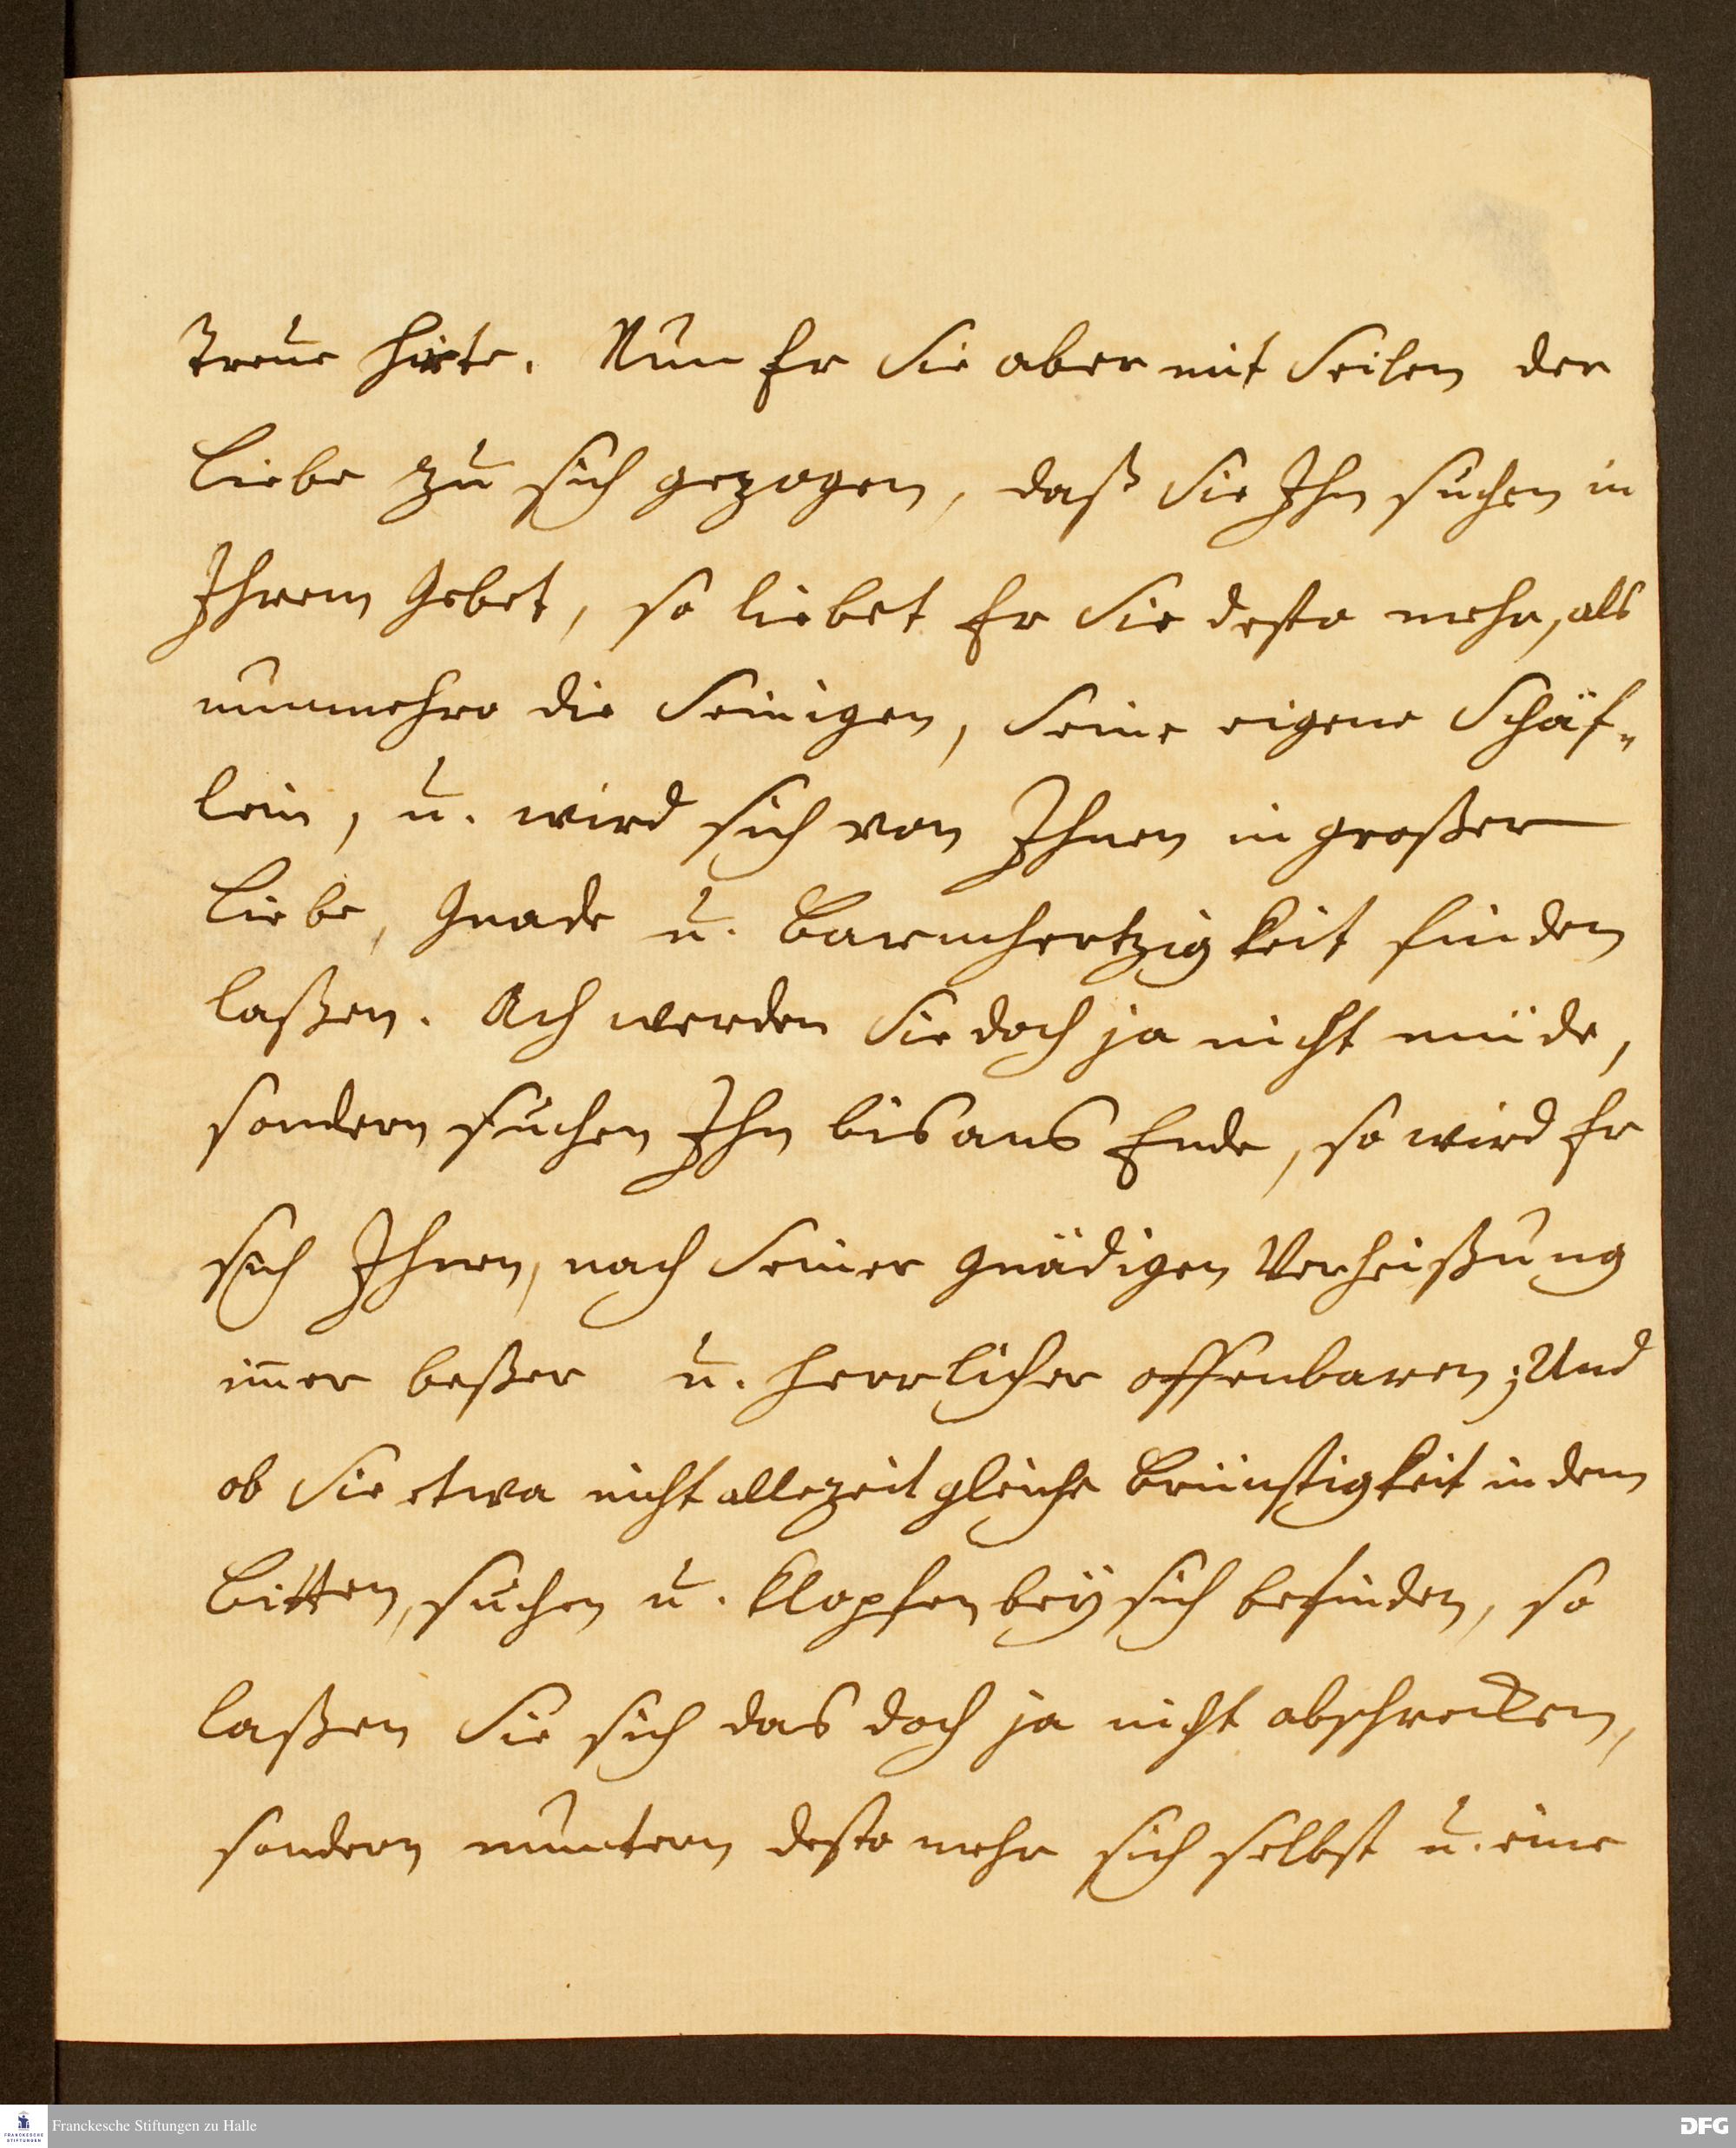 treue Hirte. Nun Er Sie aber mit Seilen der
Liebe zu sich gezogen, daß Sie Ihn suchen in
Ihrem Gebet, so liebet Er Sie desto mehr, als
nunmehro die Seinigen, Seine eigene Schäf-
lein, u. wird sich von Ihnen in großer
Liebe, Gnade u. Barmhertzigkeit finden
laßen. Ach werden Sie doch ja nicht müde,
sondern suchen Ihn bis ans Ende, so wird Er
sich Ihnen, nach Seiner gnädigen Verheißung
im̅er beßer u. herrlicher offenbaren; Und
ob Sie etwa nicht allezeit gleiche Brünstigkeit in dem
Bitten, suchen u. Klopfen bey sich befinden, so
laßen Sie sich das doch ja nicht abschrecken,
sondern muntern desto mehr sich selbst u. eine
FRANCKESCHE
STIFTUNGEN
Franckesche Stiftungen zu Halle
DFG